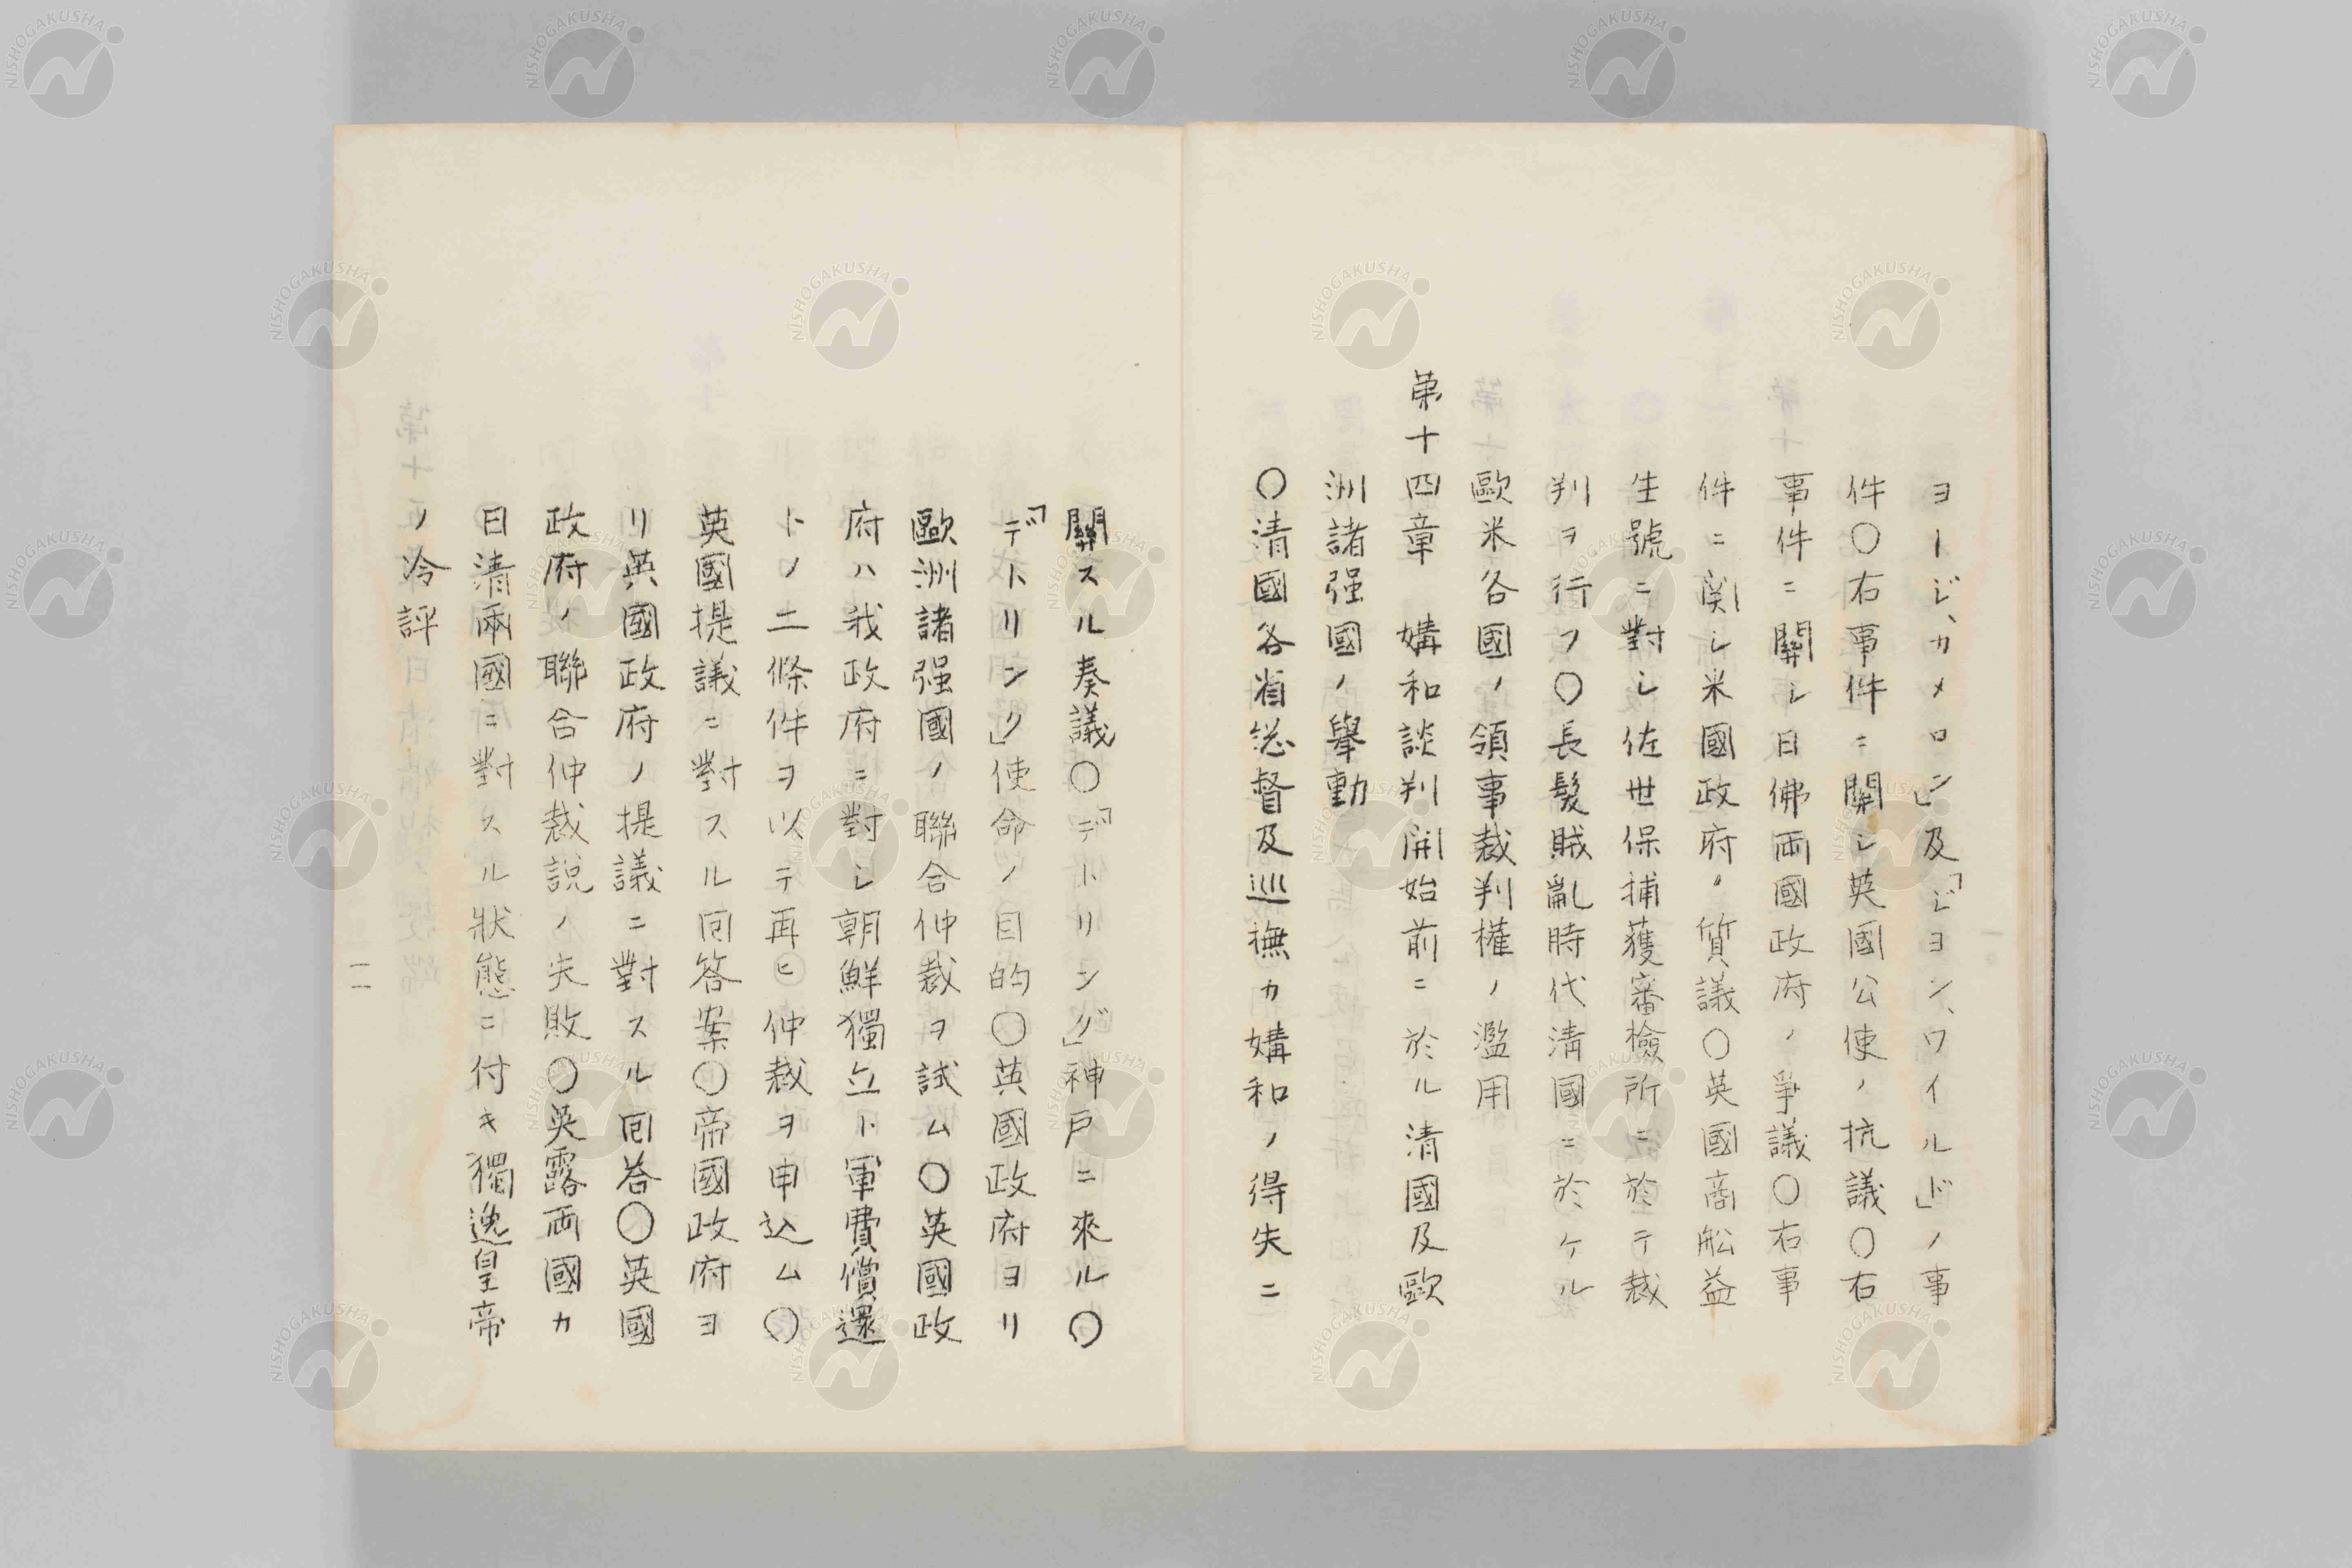 ヨージ、カメロン」及「ジョン、ワイルド」ノ事
件〇右事件ニ關シ英國公使ノ抗議〇右
事件ニ關シ日佛両國政府ノ爭議〇右事
件ニ関シ米國政府ノ質議〇英國商舩益
生號ニ對シ佐世保捕獲審檢所ニ於テ裁
判ヲ行フ〇長髮賊亂時代清國ニ於ケル
歐米各國ノ領事裁判權ノ濫用
第十四章 媾和談判開始前ニ於ル清國及歐
洲諸强國ノ擧動
〇清國各省総督及巡撫カ媾和ノ得失ニ
關スル奏議〇「デトリング」神戸ニ來ル〇
「デトリンク」使命ノ目的〇英國政府ヨリ
歐洲諸强國ノ聯合仲裁ヲ試ム〇英國政
府ハ我政府ニ對シ朝鮮獨立ト軍費償還
トノ二條件ヲ以テ再ヒ仲裁ヲ申込ム〇
英國提議ニ對スル囘答案〇帝國政府ヨ
リ英國政府ノ提議ニ對スル囘答〇英國
政府ノ聯合仲裁説ノ失敗〇英露両國カ
日清兩國ニ對スル狀態ニ付キ獨逸皇帝
ノ冷評
一一
NISHOGAKUSHA